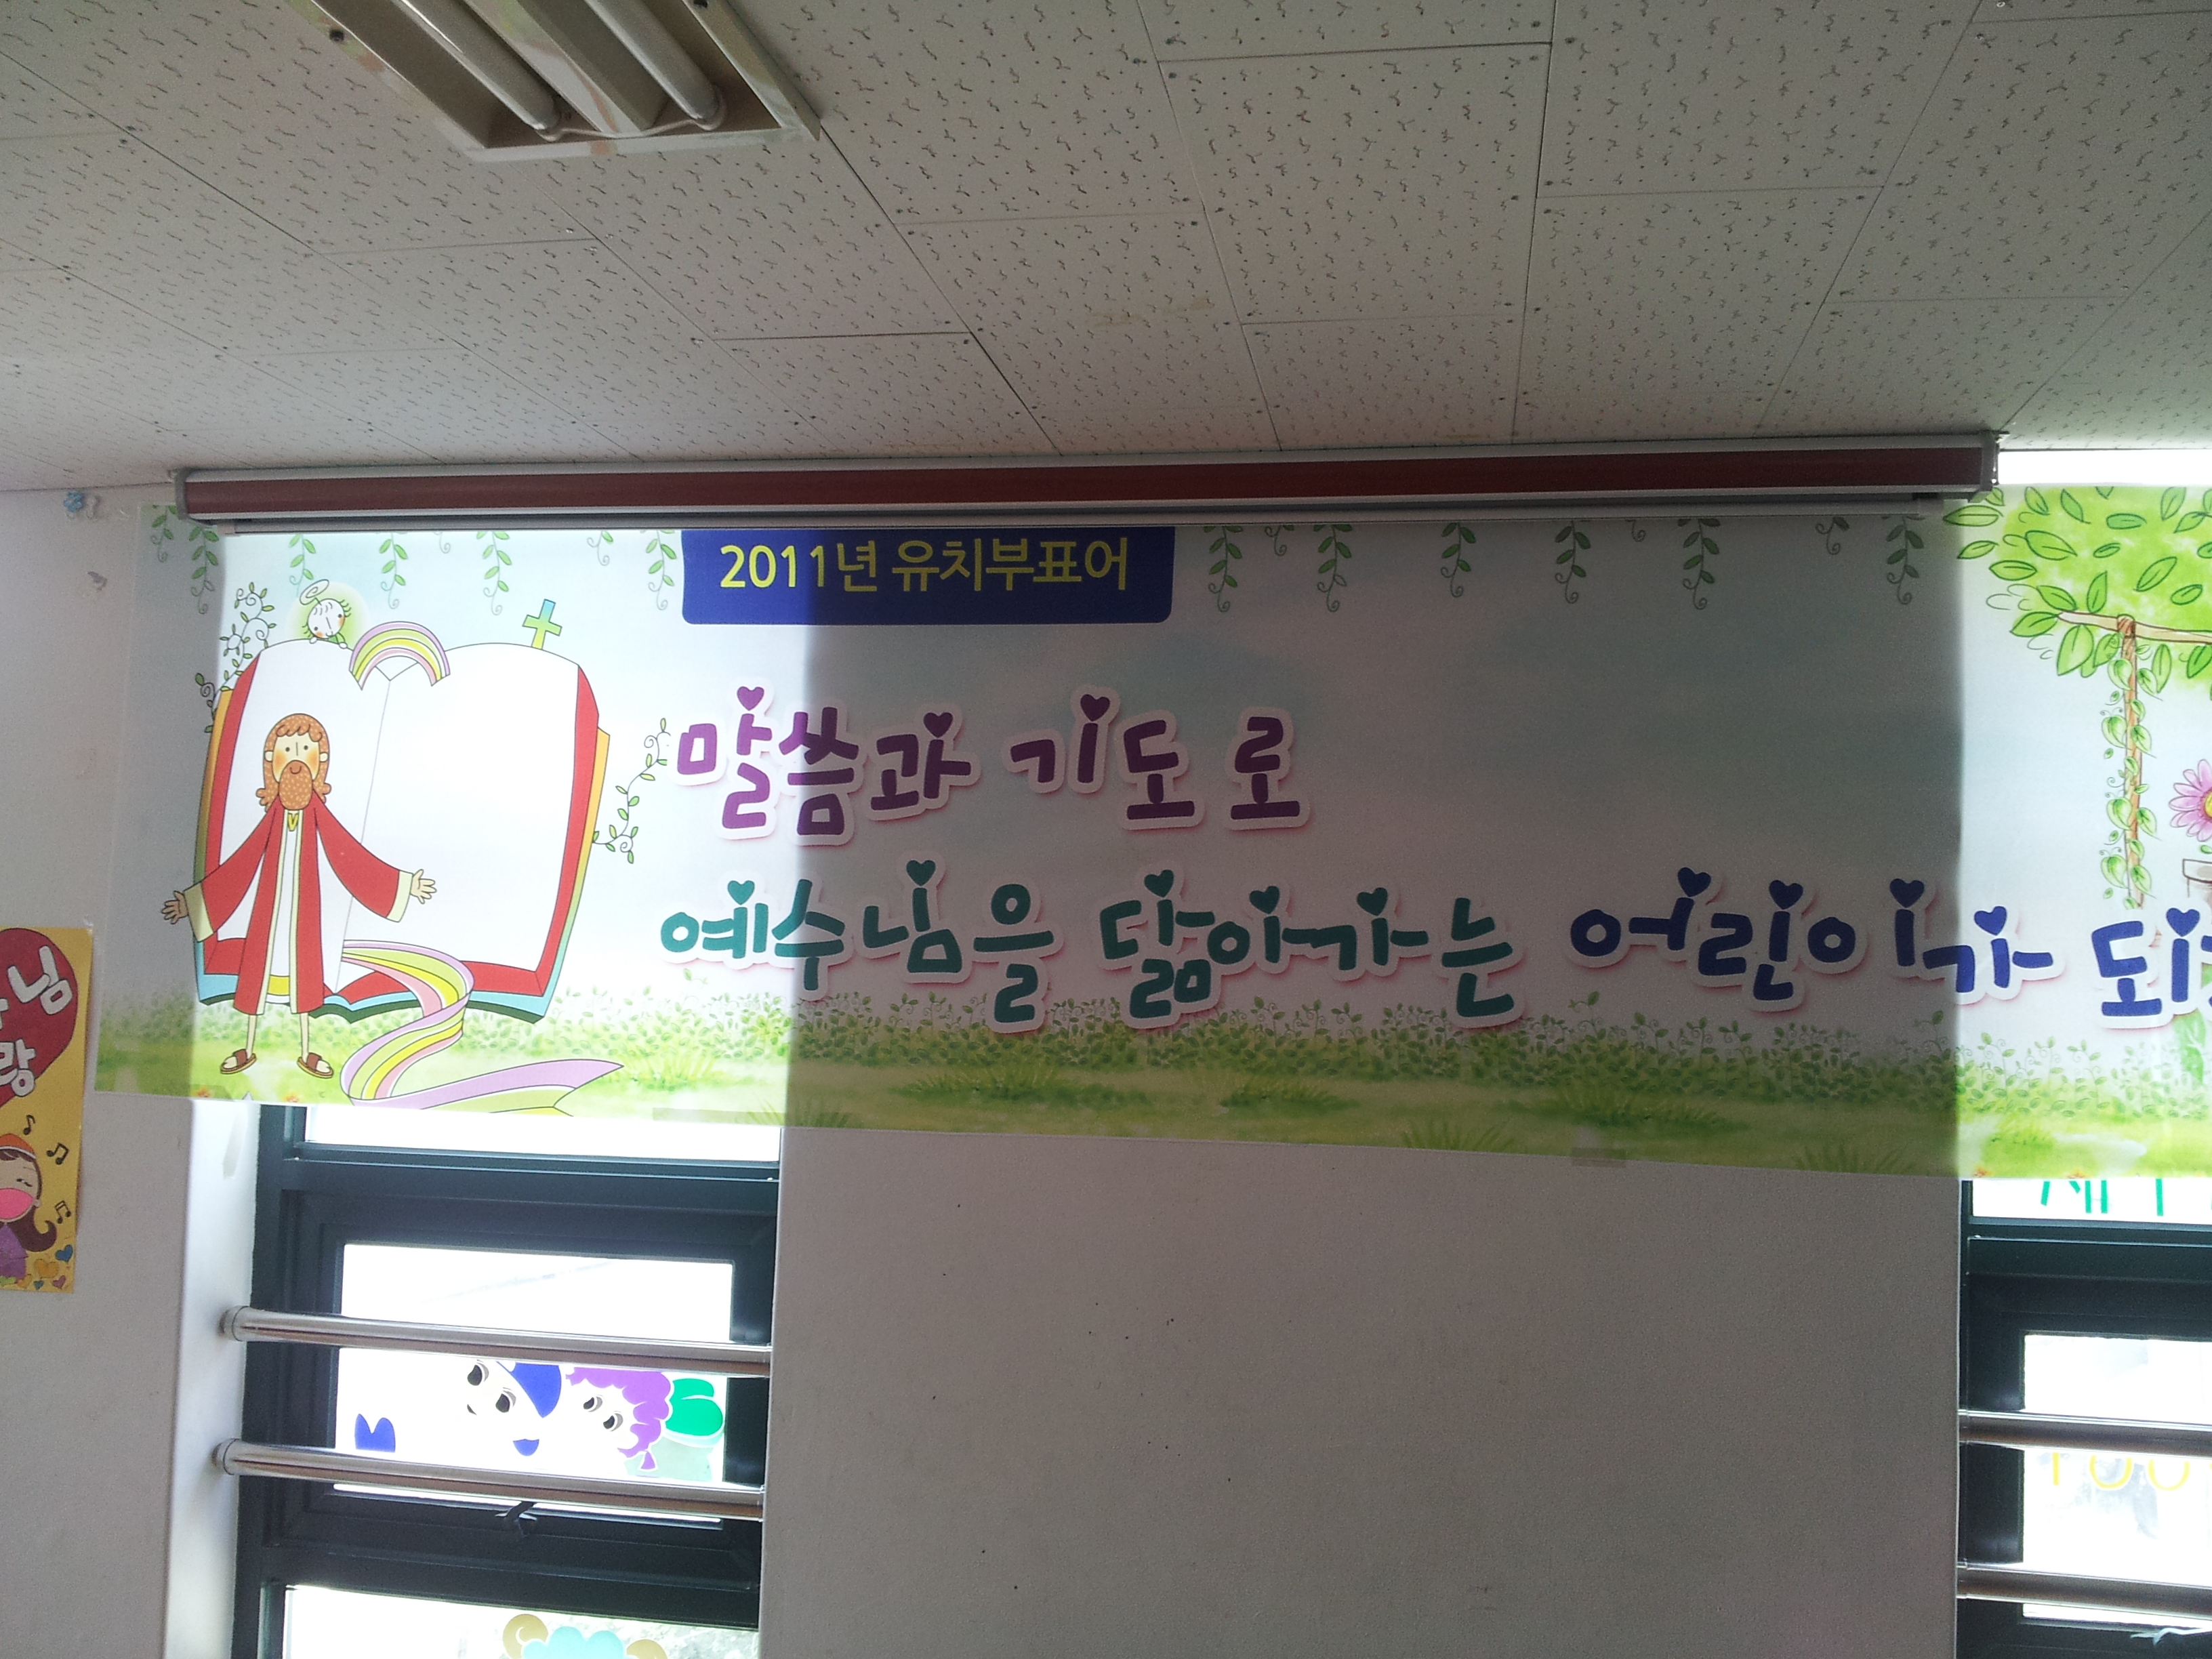 2011년 유치부표어
말씀과 기도로
예수님을 닮아가는 어린이가
님
랑